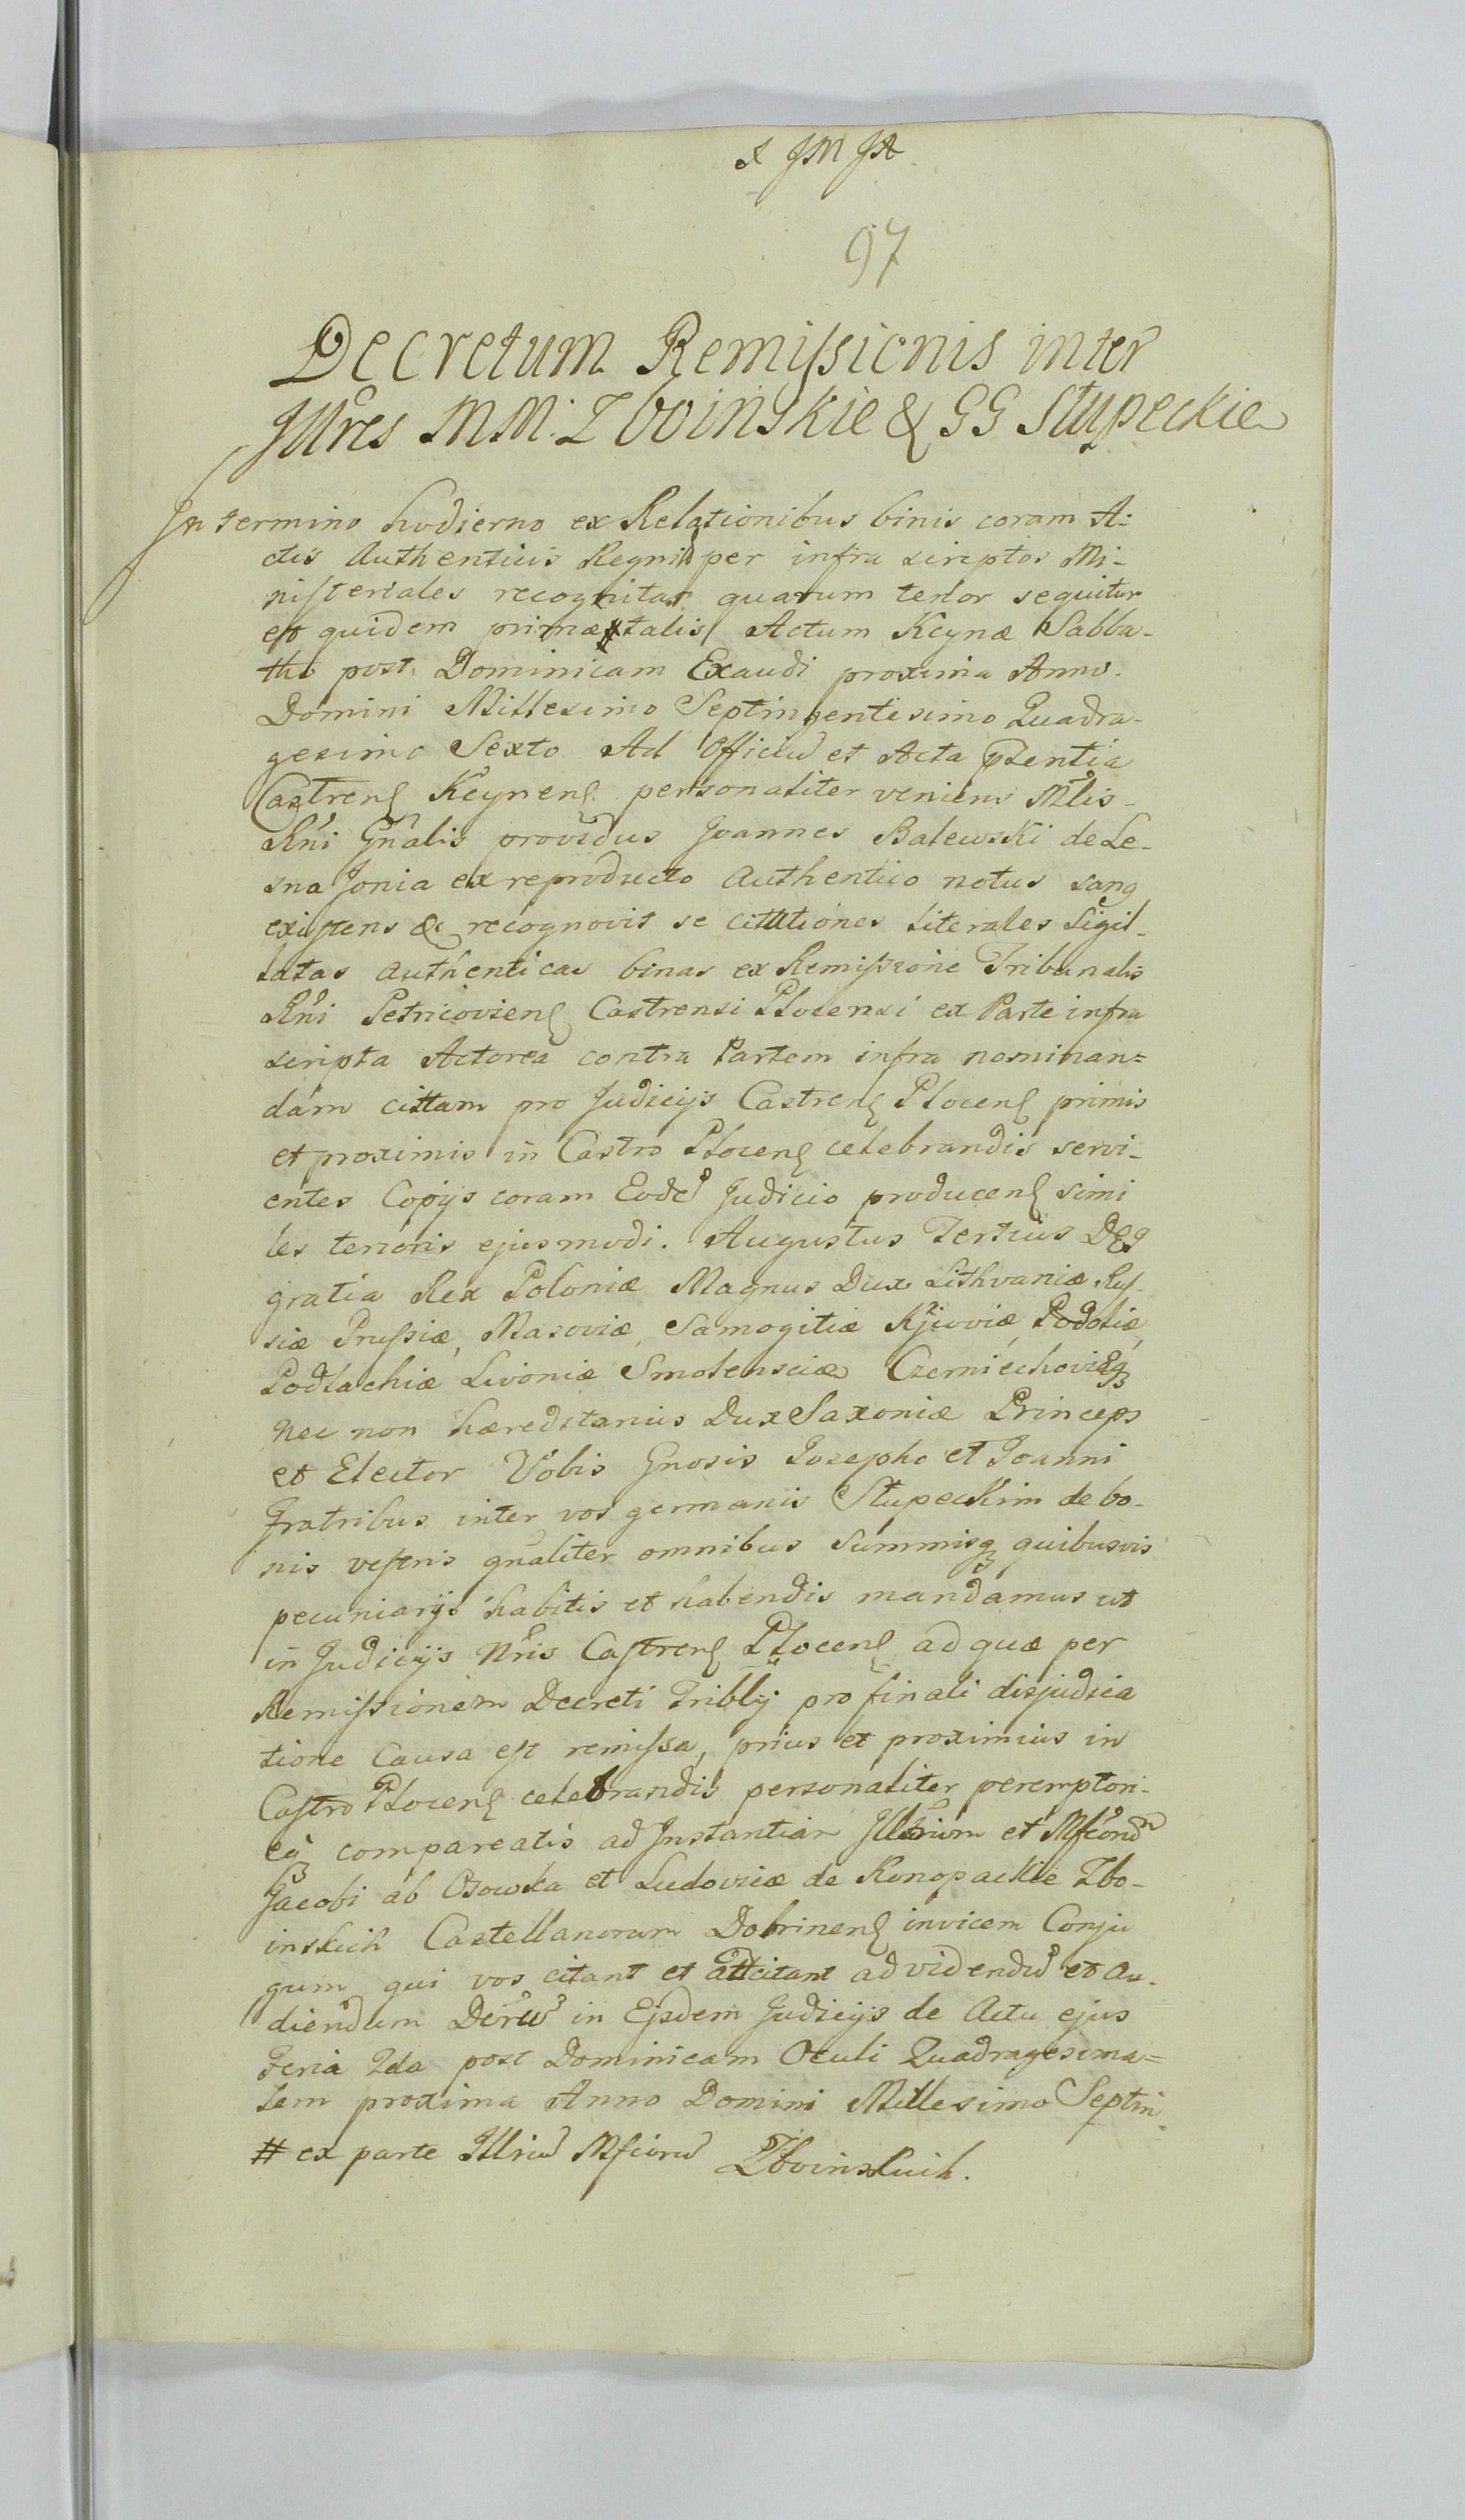 97
Decretum Remissionis inter
Illres MM: Zboinskie & GG Słupeckie
In termino hodierno ex Relationibus binis coram A-
ctis Authenticis Regni per infra scriptos Mi-
nisteriales recognitas quarum tenor sequitur
et quidem primæ # talis/ Actum Kcynæ Sabba-
tho post Dominicam Exaudi proxima Anno.
Domini Millesimo Septingentesimo Quadra-
gesimo Sexto. Ad Officiu et Acta pntia
Castrens Kcynens personaliter veniens Mlis
Rni Gnalis providus Joannes Balewski de Le-
sna Jonia ex reproducto Authentico notus sanq
existens &c recognovit se cittationes literales Sigil-
latas Authenticas binas ex Remissione Tribunalis
Rni Petricoviens Castrensi Plocensi ex Parte infra
scripta Actorea contra Partem infra nominan=
dam cittam pro Judicijs Castrens Plocens primis
et proximis in Castro Plocens celebrandis servi-
entes Copijs coram Eode Judicio producens simi
les tenoris ejusmodi. Augustus Tertius Dei
gratia Rex Poloniæ Magnus Dux Lithvaniæ Rus-
siæ Prussiæ, Masoviæ, Samogitiæ Kijoviæ, Podoliæ,
Podlachiæ Livoniæ Smolensciæ Czerniechoviæq
nec non hæreditarius Dux Saxoniæ Princeps
et Elector Vobis Gnosis Josepho et Joanni
Fratribus inter vos germanis Słupeckim de bo-
nis vestris gnaliter omnibus Summisq quibusvis
pecuniarijs habitis et habendis mandamus ut
in Judicijs Nris Castrens Plocens ad quæ per
Remissionem Decreti Triblij pro finali disjudica
tione Causa est remissa, prius et proximius in
Castro Plocens celebrandis personaliter peremptori-
eq compareatis ad Instantiam Illrium et Mficond
Jacobi ab Osowka et Ludovicæ de Konopackie Zbo-
inskich Castellanorum Dobrinens invicem Conju
gum qui vos citant et attcitant ad videndu et au-
diendum Decru in Ejsdem Judicijs de Actu ejus
Feria 2da post Dominicam Oculi Quadragesima=
lem proxima Anno Domini Millesimo Septin-
# ex parte Illriu Mficoru Zboinskich.